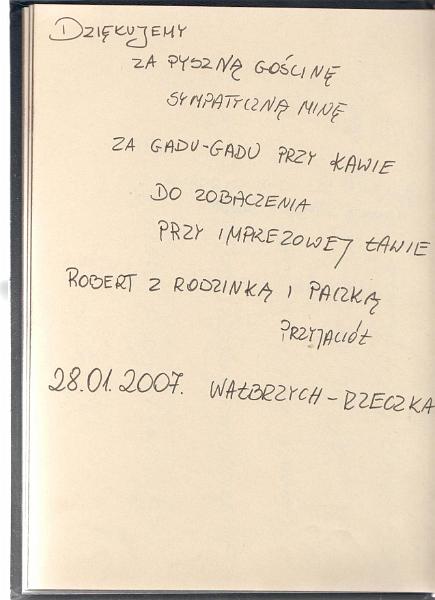 DZIĘKUJEMY
ZA PYSZNĄ GOŚCINĘ
SYMPATYCZNĄ MINĘ
ZA GADU-GADU PRZY KAWIE
DO ZOBACZENIA
PRZY IMPREZOWEJ ŁAWIE
ROBERT Z RODZINKĄ I PACZKĄ
PRZYJACIÓŁ
28.01.2007. WAŁBRZYCH - RZECZKA